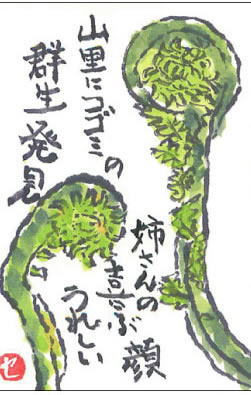 山里にコゴミの
群生発見
姉さんの
喜ぶ顔
うれしい
セ